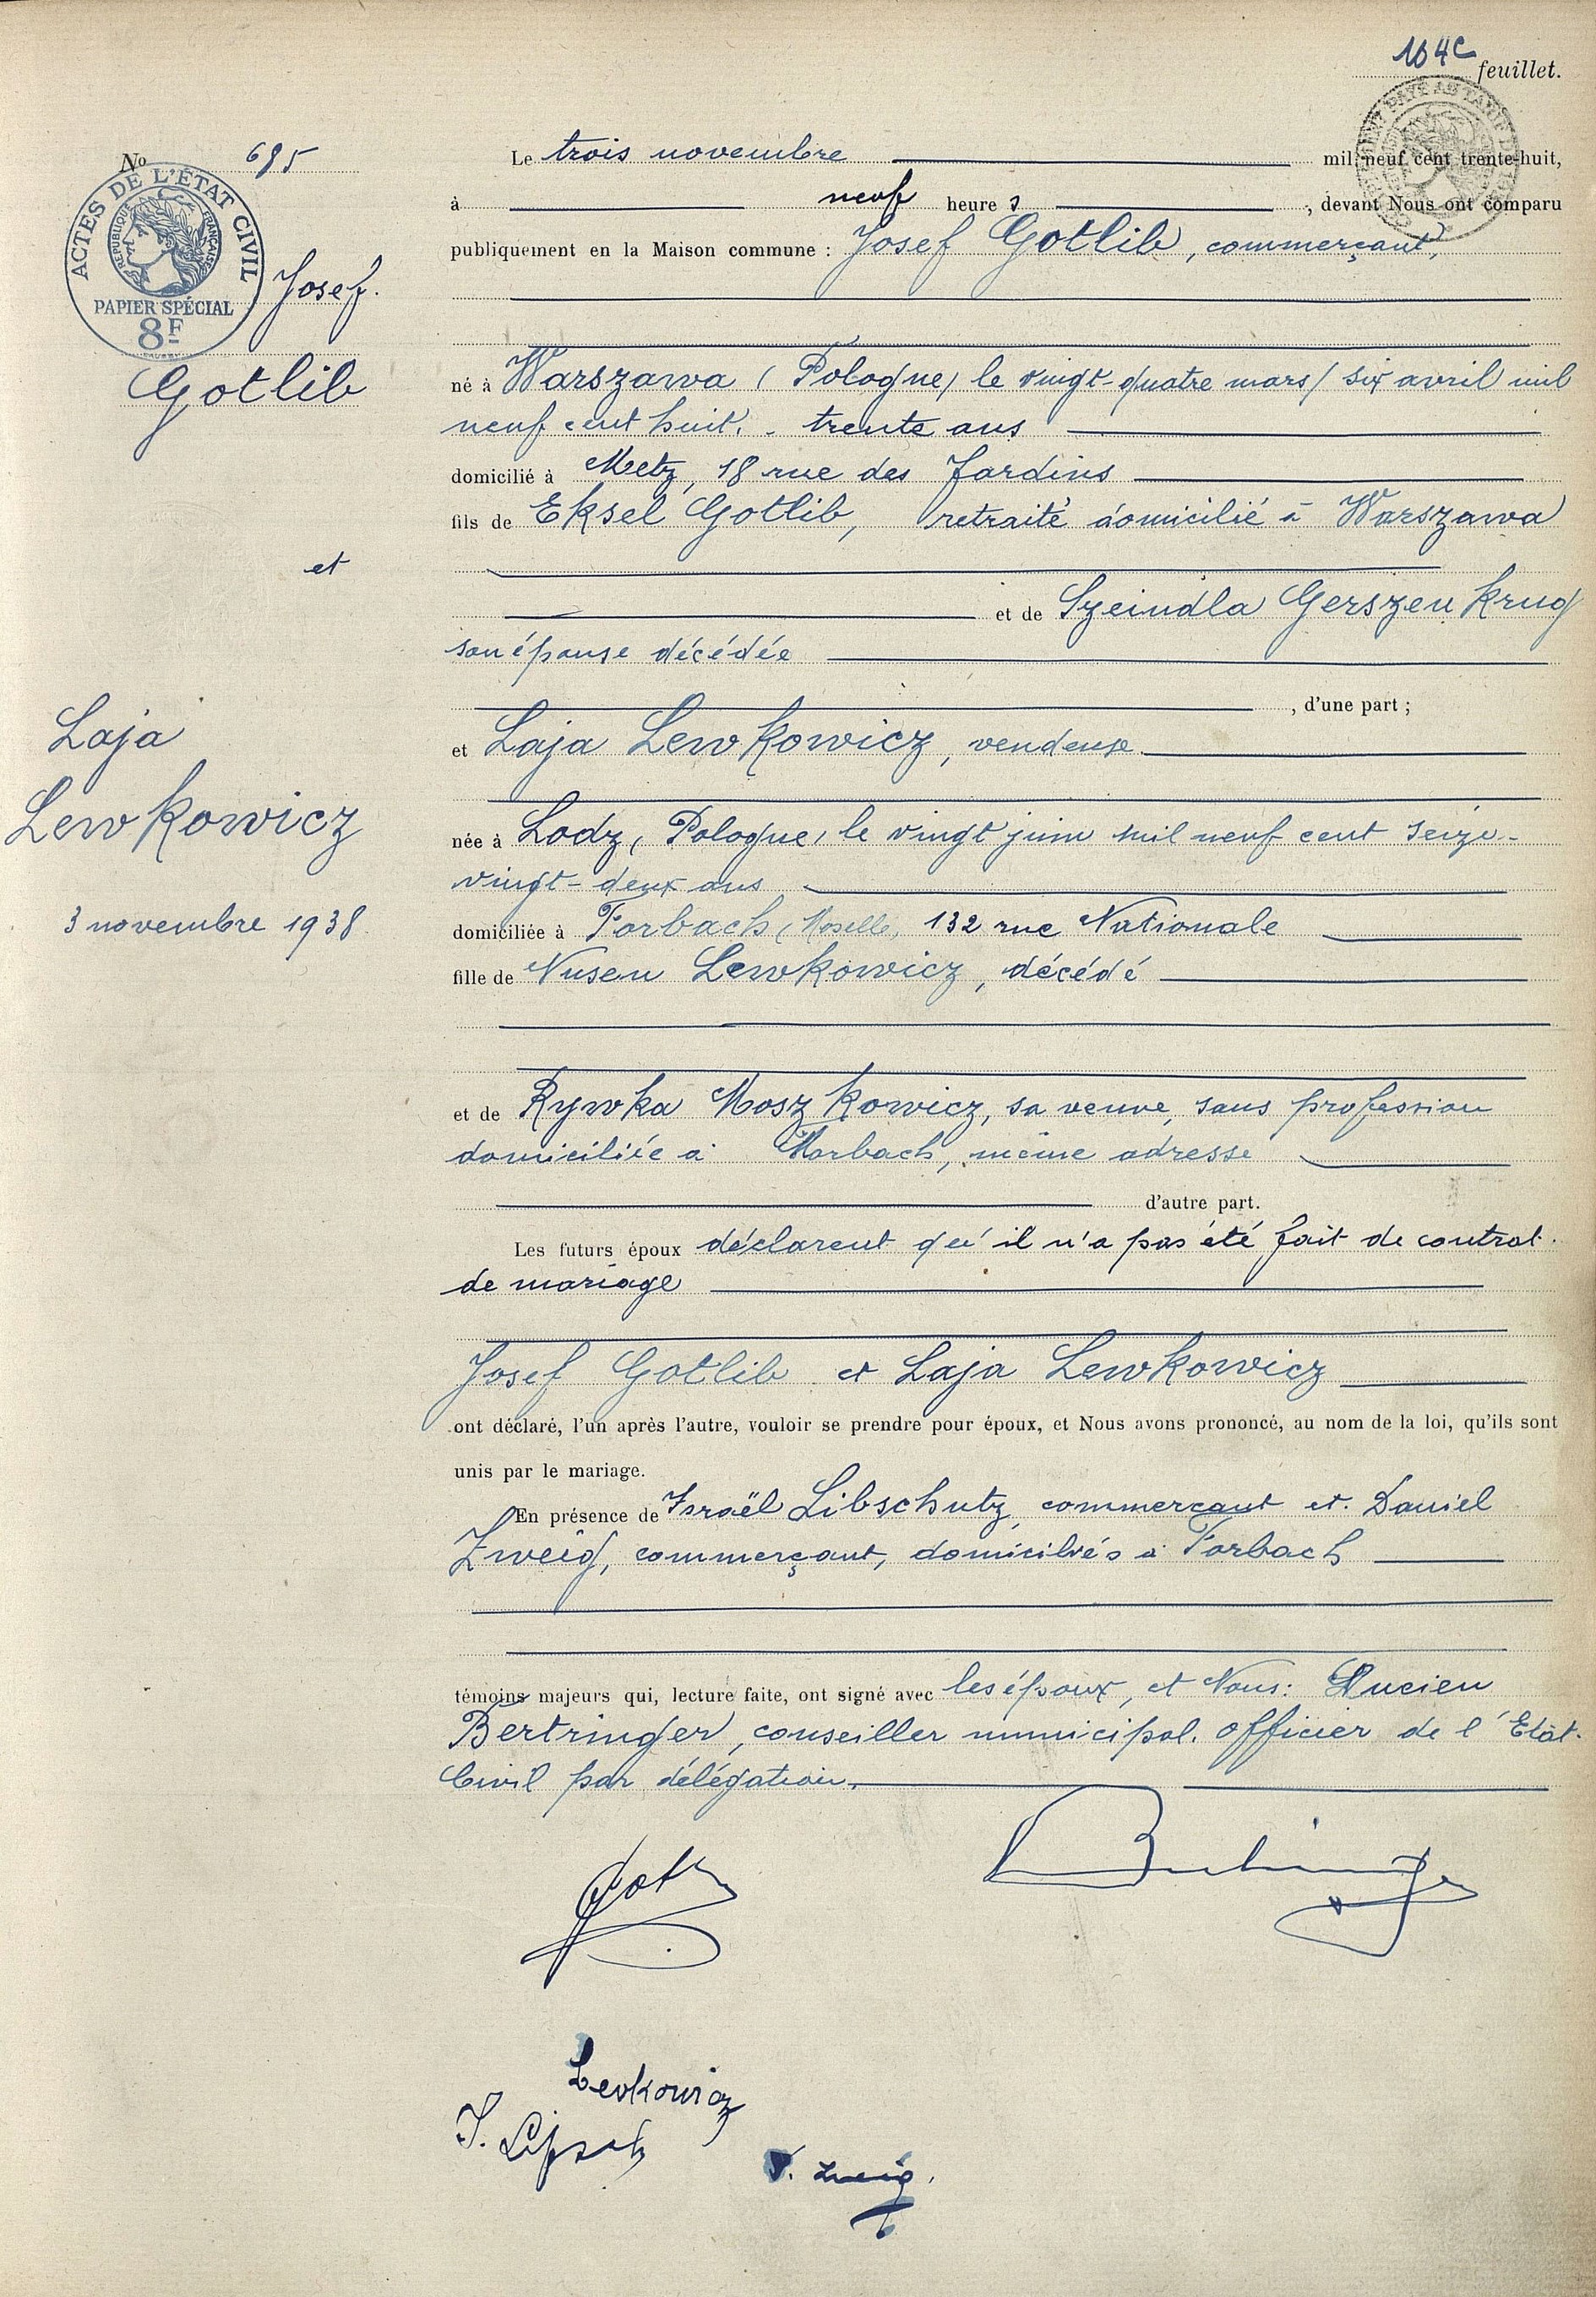 104e feuillet.
No 695
ACTES DE L'ÉTAT CIVIL
RÉPUBLIQUE FRANÇAISE
PAPIER SPÉCIAL
8F
Josef
Gotlib
et
Laja
Lewkowicz
3 novembre 1938.
Le trois novembre mil neuf cent trente-huit,
à neuf heures, devant Nous ont comparu
publiquement en la Maison commune : Josef Gotlib, commerçant,
né à Warszawa (Pologne) le vingt-quatre mars/six avril mil
neuf cent huit. - trente ans
domicilié à Metz, 18 rue des Jardins
fils de Eksel Gotlib, retraité domicilié à Warszawa
et de Szeindla Gerszen Krug
son épouse décédée
, d'une part ;
et Laja Lewkowicz, vendeuse
née à Lodz, (Pologne) le vingt juin mil neuf cent seize -
vingt-deux ans
domiciliée à Forbach (Moselle) 132 rue Nationale
fille de Nusen Lewkowicz, décédé
et de Rywka Moszkowicz, sa veuve, sans profession
domiciliée à Forbach, même adresse
d'autre part.
Les futurs époux déclarent qu'il n'a pas été fait de contrat
de mariage
Josef Gotlib et Laja Lewkowicz
ont déclaré, l'un après l'autre, vouloir se prendre pour époux, et Nous avons prononcé, au nom de la loi, qu'ils sont
unis par le mariage.
En présence de Israël Libschutz, commerçant et Daniel
Zweig, commerçant, domiciliés à Forbach
témoins majeurs qui, lecture faite, ont signé avec les époux, et Nous: Lucien
Bertringer, conseiller municipal, officier de l'Etat-
Civil par délégation.
Levkowicz